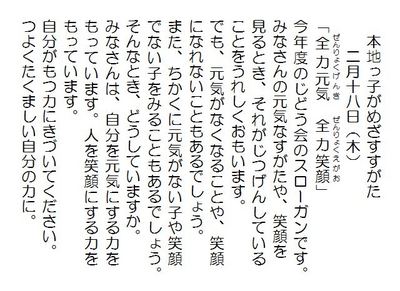 本地っ子がめざすすがた
二月十八日（木）
「全力元気　全力笑顔」
ぜんりょくげんき　ぜんりょくえがお
今年度のじどう会のスローガンです。
みなさんの元気なすがたや、笑顔を
見るとき、それがじつげんしている
ことをうれしくおもいます。
でも、元気がなくなることや、笑顔
になれないこともあるでしょう。
また、ちかくに元気がない子や笑顔
でない子をみることもあるでしょう。
そんなとき、どうしていますか。
みなさんは、自分を元気にする力を
もっています。人を笑顔にする力を
もっています。
自分がもつ力にきづいてください。
つよくたくましい自分の力に。